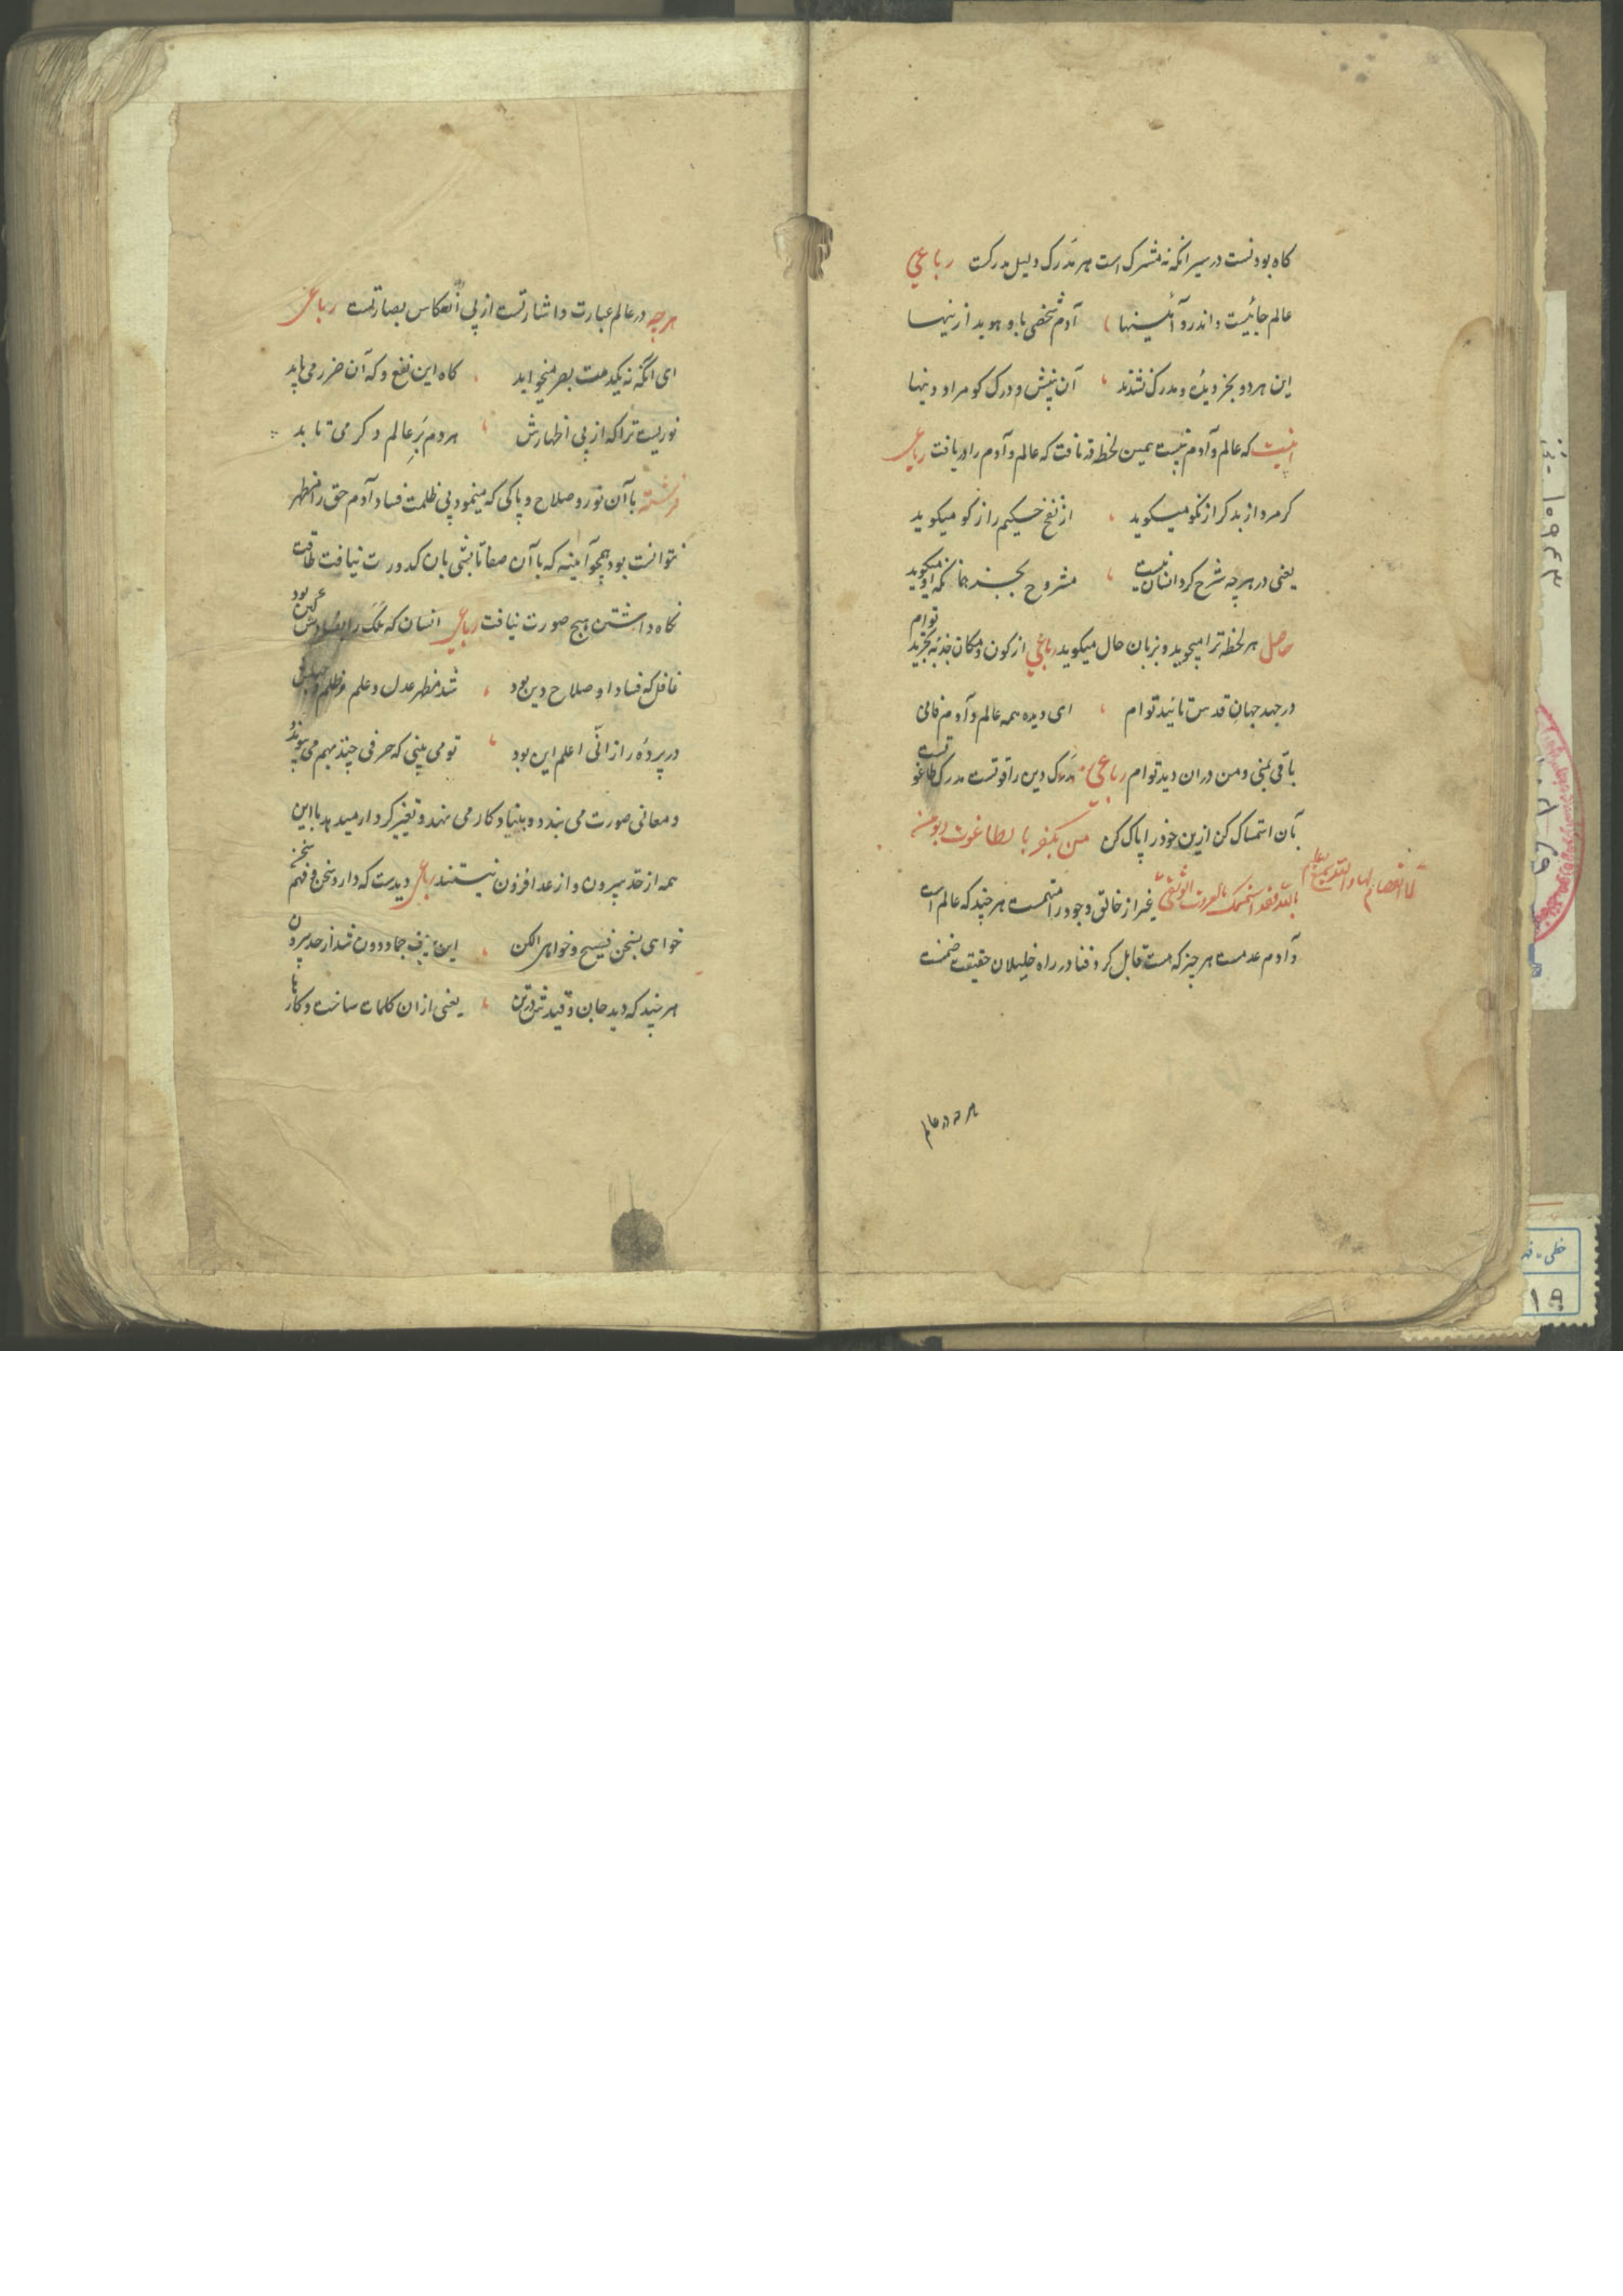 کاه بودنست در سیر انکه نه مشرک است هر مدرک دلیل مدرکت رباعی
عالم جائیست و اندرو آئینها آدم شخصی با و هوید از ینها
این هر دو بجز دیده و مدرک نشدند آن بینش و درک کو مراو دینها
نیست که عالم و آدم نیست همین لحظه قد تافت که عالم و آدم را دریافت رباعی
کر مرد از بد کر از نکو میکوید از نفخ حکیم راز کو میکوید
یعنی در هر چه شرح کرد انسان نیست مشروح بجز همانکه او میکوید
حاصل هر لحظه ترا میجوید و بزبان حال میکوید رباعی از کون و مکان جذبه تجرید توام
در جهد جهان قدس تائید توام ای دیده همه عالم و آدم فانی
باقی بمنی و من دران دید توام رباعی مدرک دین را قوتست مدرک طاغوتست
بآن استمساک کن ازین خود را پاک کن من یکفر بالطاغوت ویومن
بالله فقد استمسک بالعروة الوثقی لا انفصام لها والله سمیع علیم غیر از خالق وجود را متهمست هر چند که عالم است
و آدم عدمست هر چیز که هست قابل کرد و فنا در راه خلیلان حقیقت صنمست
هر چه در عالم
هرچه در عالم عبارت و اشارتست از پی انعکاس بصارتست رباعی
ای انکه نه یکدمت بصر میخوابد کاه این نفع و که آن ضرر می یابد
نوریست ترا که از پی اظهارش هر دم بر عالم دکر می تابد
فرشته با آن نور و صلاح و پاکی که مینمود بی ظلمت فساد آدم حق را مظهر
نتوانست بود همچو آیینه که با آن صفا تا پشتی بان کدورت نیافت طاقت
نکاه داشتن هیچ صورت نیافت رباعی انسان که ملک را بفسادش کین بود
غافل که فساد او صلاح دین بود شد مظهر عدل و علم و ظلم و جهلش
در پردۀ راز انی اعلم این بود تو می بینی که حرفی چند بهم می پیوندد
و معانی صورت می بندد و بنیاد کار می نهد و تغییر کردار میدهد با این
همه از حد بیرون و از عد افزون نیستند رباعی دیدست که دارد سخن و فهم سخن
خواهی بسخن فصیح و خواهی الکن این حرف جماد دون شد از حد بیرون
هر چند که دید جان و قیدش در تن یعنی ازان کلمات ساخت و کار